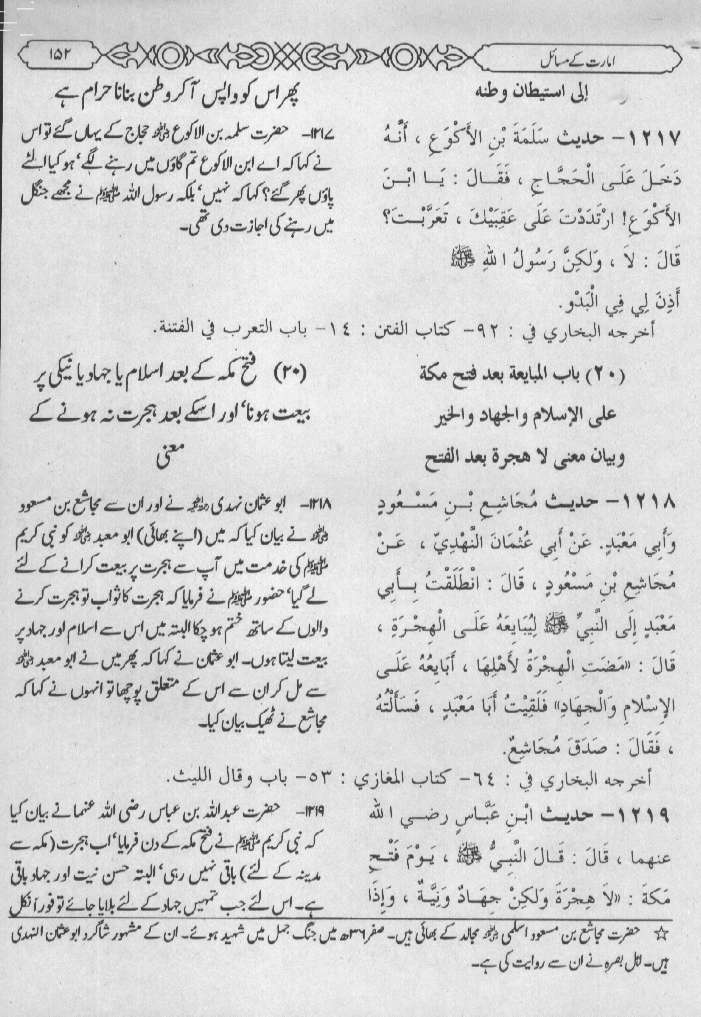 امارت کے مسائل
۱۵۲
إلى استيطان وطنه
۱۲۱۷- حديث سَلَمَةَ بْنِ الأَكْوَعِ ، أَنَّهُ
دَخَلَ عَلَى الْحَجَّاجِ ، فَقَالَ : يَا ابْنَ
الأَكْوَعِ! ارْتَدَدْتَ عَلَى عَقِبَيْكَ ، تَعَرَّبْتَ؟
قَالَ : لاَ ، وَلكِنَّ رَسُولُ اللهِ ﷺ
أَذِنَ لِي فِي الْبَدْوِ.
پھر اس کو واپس آ کر وطن بنانا حرام ہے
۱۲۱۷- حضرت سلمہ بن الاکوع رضی اللہ عنہ حجاج کے یہاں گئے تو اس
نے کہا کہ اے ابن الاکوع تم گاؤں میں رہنے لگے‘ ہو کیا الٹے
پاؤں پھر گئے؟ کہا کہ نہیں‘ بلکہ رسول اللہ ﷺ نے مجھے جنگل
میں رہنے کی اجازت دی تھی۔
أخرجه البخاري في : ۹۲- كتاب الفتن : ١٤- باب التعرب في الفتنة.
(۲۰) باب المبايعة بعد فتح مكة
على الإسلام والجهاد والخير
وبيان معنى لا هجرة بعد الفتح
(۲۰) فتح مکہ کے بعد اسلام یا جہاد یا نیکی پر
بیعت ہونا‘ اور اسکے بعد ہجرت نہ ہونے کے
معنی
۱۲۱۸- حديث مُجَاشِعِ بْنِ مَسْعُودٍ
وَأَبِي مَعْبَدٍ. عَنْ أَبِي عُثْمَانَ النَّهْدِيِّ ، عَنْ
مُجَاشِعِ بْنِ مَسْعُودٍ ، قَالَ : انْطَلَقْتُ بِأَبِي
مَعْبَدٍ إِلَى النَّبِيِّ ﷺ لِيُبَايِعَهُ عَلَى الْهِجْرَةِ ،
قَالَ : «مَضَتِ الْهِجْرَةُ لأَهْلِهَا ، أُبَايِعُهُ عَلَى
الإِسْلاَمِ وَالْجِهَادِ» فَلَقِيتُ أَبَا مَعْبَدٍ ، فَسَأَلْتُهُ
، فَقَالَ : صَدَقَ مُجَاشِعٌ.
۱۲۱۸- ابو عثمان نہدی رضی اللہ عنہ نے اور ان سے مجاشع بن مسعود
رضی اللہ عنہ نے بیان کیا کہ میں (اپنے بھائی) ابو معبد رضی اللہ عنہ کو نبی کریم
ﷺ کی خدمت میں آپ سے ہجرت پر بیعت کرانے کے لئے
لے گیا‘ حضور ﷺ نے فرمایا کہ ہجرت کا ثواب تو ہجرت کرنے
والوں کے ساتھ ختم ہو چکا البتہ میں اس سے اسلام اور جہاد پر
بیعت لیتا ہوں۔ ابو عثمان نے کہا کہ پھر میں نے ابو معبد رضی اللہ عنہ
سے مل کر ان سے اس کے متعلق پوچھا تو انہوں نے کہا کہ
مجاشع نے ٹھیک بیان کیا۔
أخرجه البخاري في : ٦٤- كتاب المغازي : ٥٣- باب وقال الليث.
۱۲۱۹- حديث ابْنِ عَبَّاسٍ رضي الله
عنهما ، قَالَ : قَالَ النَّبِيُّ ﷺ ، يَوْمَ فَتْحِ
مَكَةَ : «لاَ هِجْرَةَ وَلكِنْ جِهَادٌ وَنِيَّةٌ ، وَإِذَا
۱۲۱۹- حضرت عبداللہ بن عباس رضی اللہ عنہما نے بیان کیا
کہ نبی کریم ﷺ نے فتح مکہ کے دن فرمایا‘ اب ہجرت (مکہ سے
مدینہ کے لئے) باقی نہیں رہی‘ البتہ حسن نیت اور جہاد باقی
ہے۔ اس لئے جب تمہیں جہاد کے لئے بلایا جائے تو فوراً نکل
☆ حضرت مجاشع بن مسعود اسلمی رضی اللہ عنہ مجالد کے بھائی ہیں۔ صفر ۳۶ھ میں جنگ جمل میں شہید ہوئے۔ ان کے مشہور شاگرد ابو عثمان النہدی
ہیں۔ اہل بصرہ نے ان سے روایت کی ہے۔